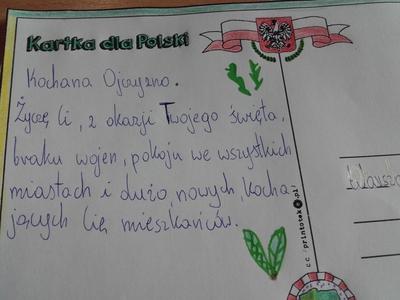 Kartka dla Polski
Kochana Ojczyzno.
Życzę Ci, z okazji Twojego święta,
braku wojen, pokoju we wszystkich
miastach i dużo, nowych, kocha-
jących Cię mieszkańców.
printotek.pl